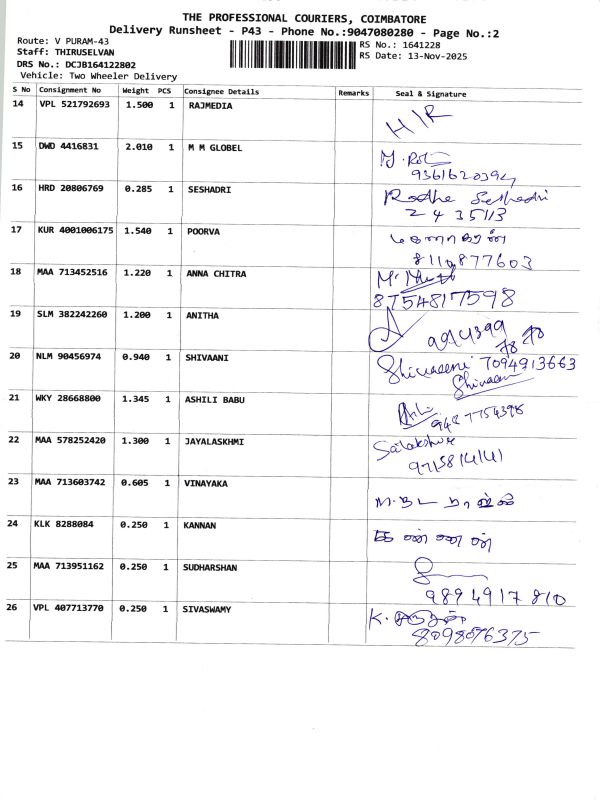 THE PROFESSIONAL COURIERS, COIMBATORE
Delivery Runsheet - P43 - Phone No.:9047080280 - Page No.:2
Route: V PURAM-43
RS No.: 1641228
Staff: THIRUSELVAN
RS Date: 13-Nov-2025
DRS No.: DCJB164122802
Vehicle: Two Wheeler Delivery
S No Consignment No Weight PCS Consignee Details Remarks Seal & Signature
14 VPL 521792693 1.500 1 RAJMEDIA H/R
15 DWD 4416831 2.010 1 M M GLOBEL
16 HRD 20806769 0.285 1 SESHADRI Radha Seshadri
2435113
17 KUR 4001006175 1.540 1 POORVA
18 MAA 713452516 1.220 1 ANNA CHITRA
8754817598
19 SLM 382242260 1.200 1 ANITHA
20 NLM 90456974 0.940 1 SHIVAANI Shivaani 7094913663
Shivaani
21 WKY 28668800 1.345 1 ASHILI BABU
9487754398
22 MAA 578252420 1.300 1 JAYALASKHMI
9715814141
23 MAA 713603742 0.605 1 VINAYAKA
24 KLK 8288084 0.250 1 KANNAN கண்ணன்
25 MAA 713951162 0.250 1 SUDHARSHAN
9894917810
26 VPL 407713770 0.250 1 SIVASWAMY
8098076375